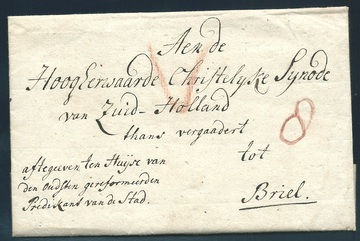 Aen de
Hoogeerwaarde Christelyke Synode
van Zuid-Holland
thans vergaadert
8
tot
Briel.
aftegeeven ten Huijse van
den oudsten gereformeerden
Predikant van de Stad.